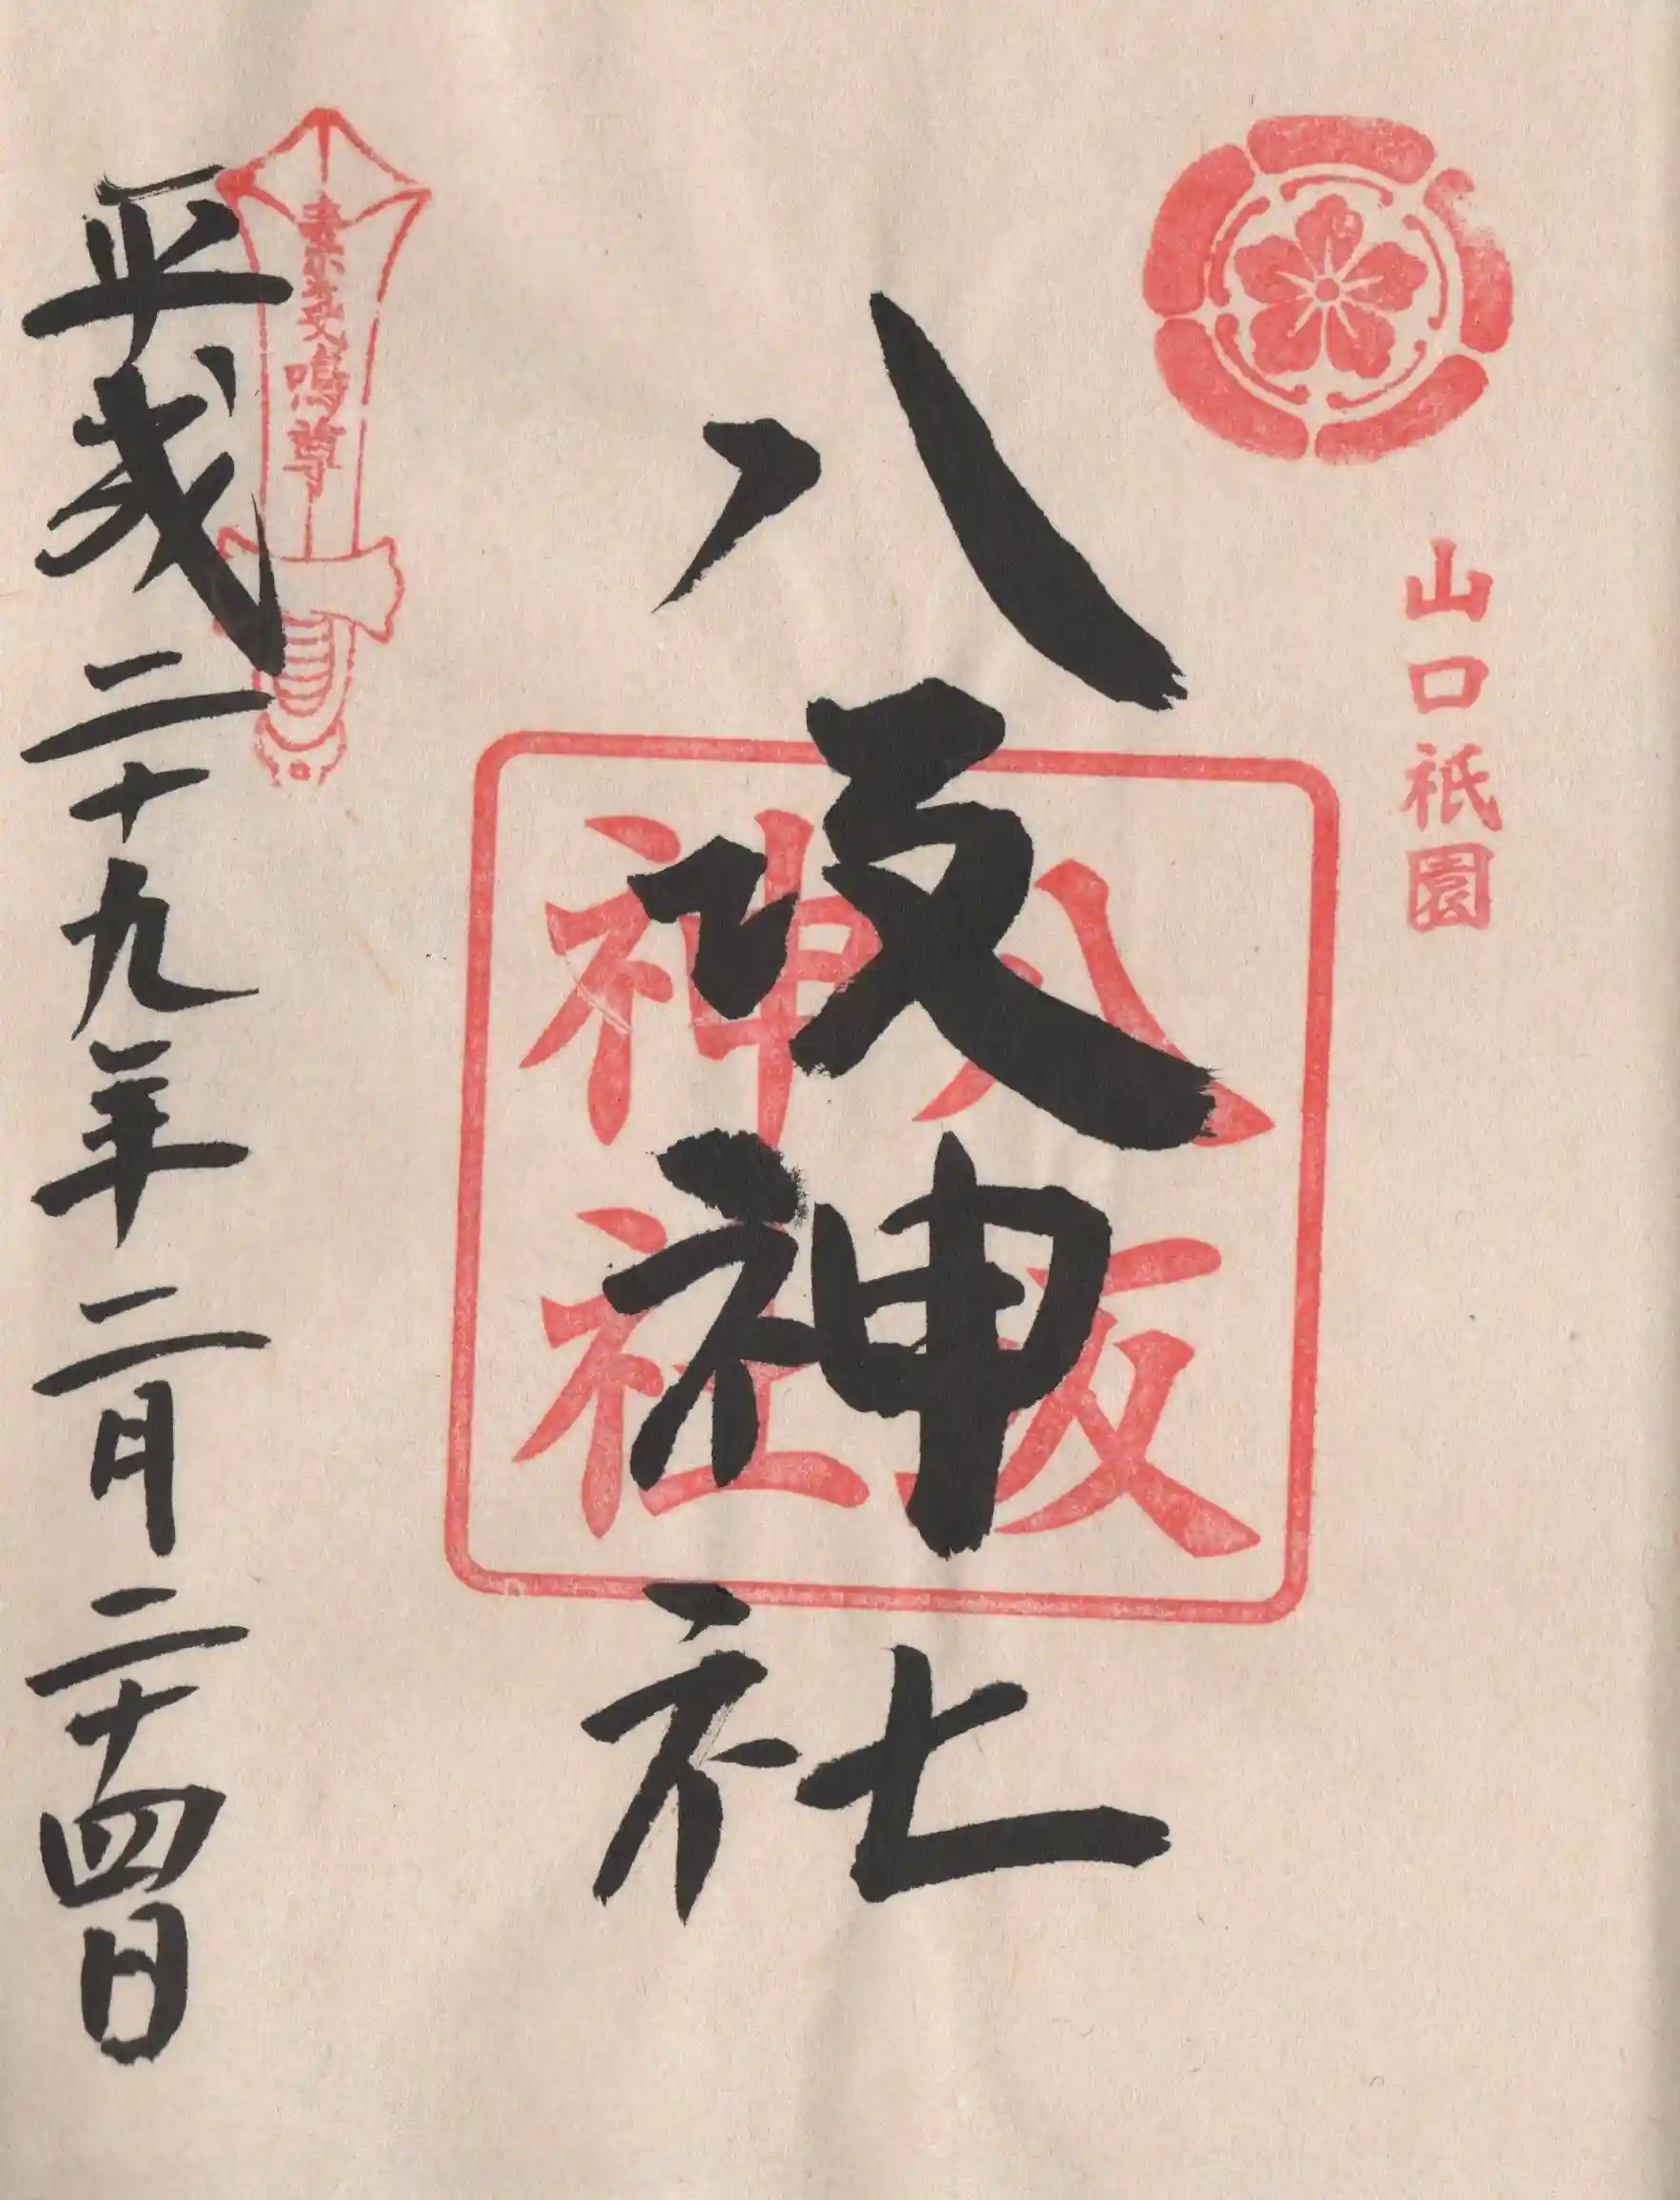 山口祇園
八坂神社
八坂
神社
素盞嗚尊
平成二十九年二月二十四日